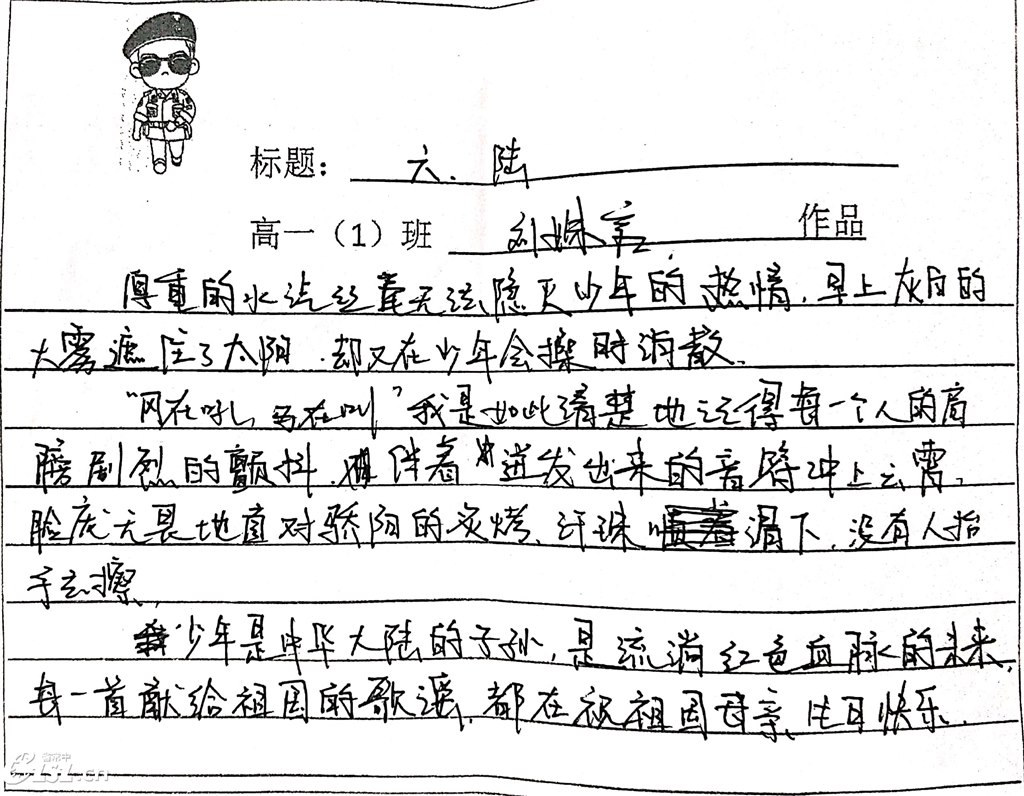 标题： 六. 陆
高一（1）班 刘姝言 作品
厚重的水汽丝毫无法隐灭少年的热情，早上灰白的
大雾遮住了太阳，却又在少年会操时消散。
“风在吼，马在叫”我是如此清楚地记得每一个人的肩
膀剧烈的颤抖，伴着迸发出来的音将冲上云霄。
脸庞无畏地直对骄阳的炙烤，汗珠滑下，没有人抬
手去擦。
少年是中华大陆的子孙，是流淌红色血脉的未来，
每一首献给祖国的歌谣，都在祝祖国母亲，生日快乐。